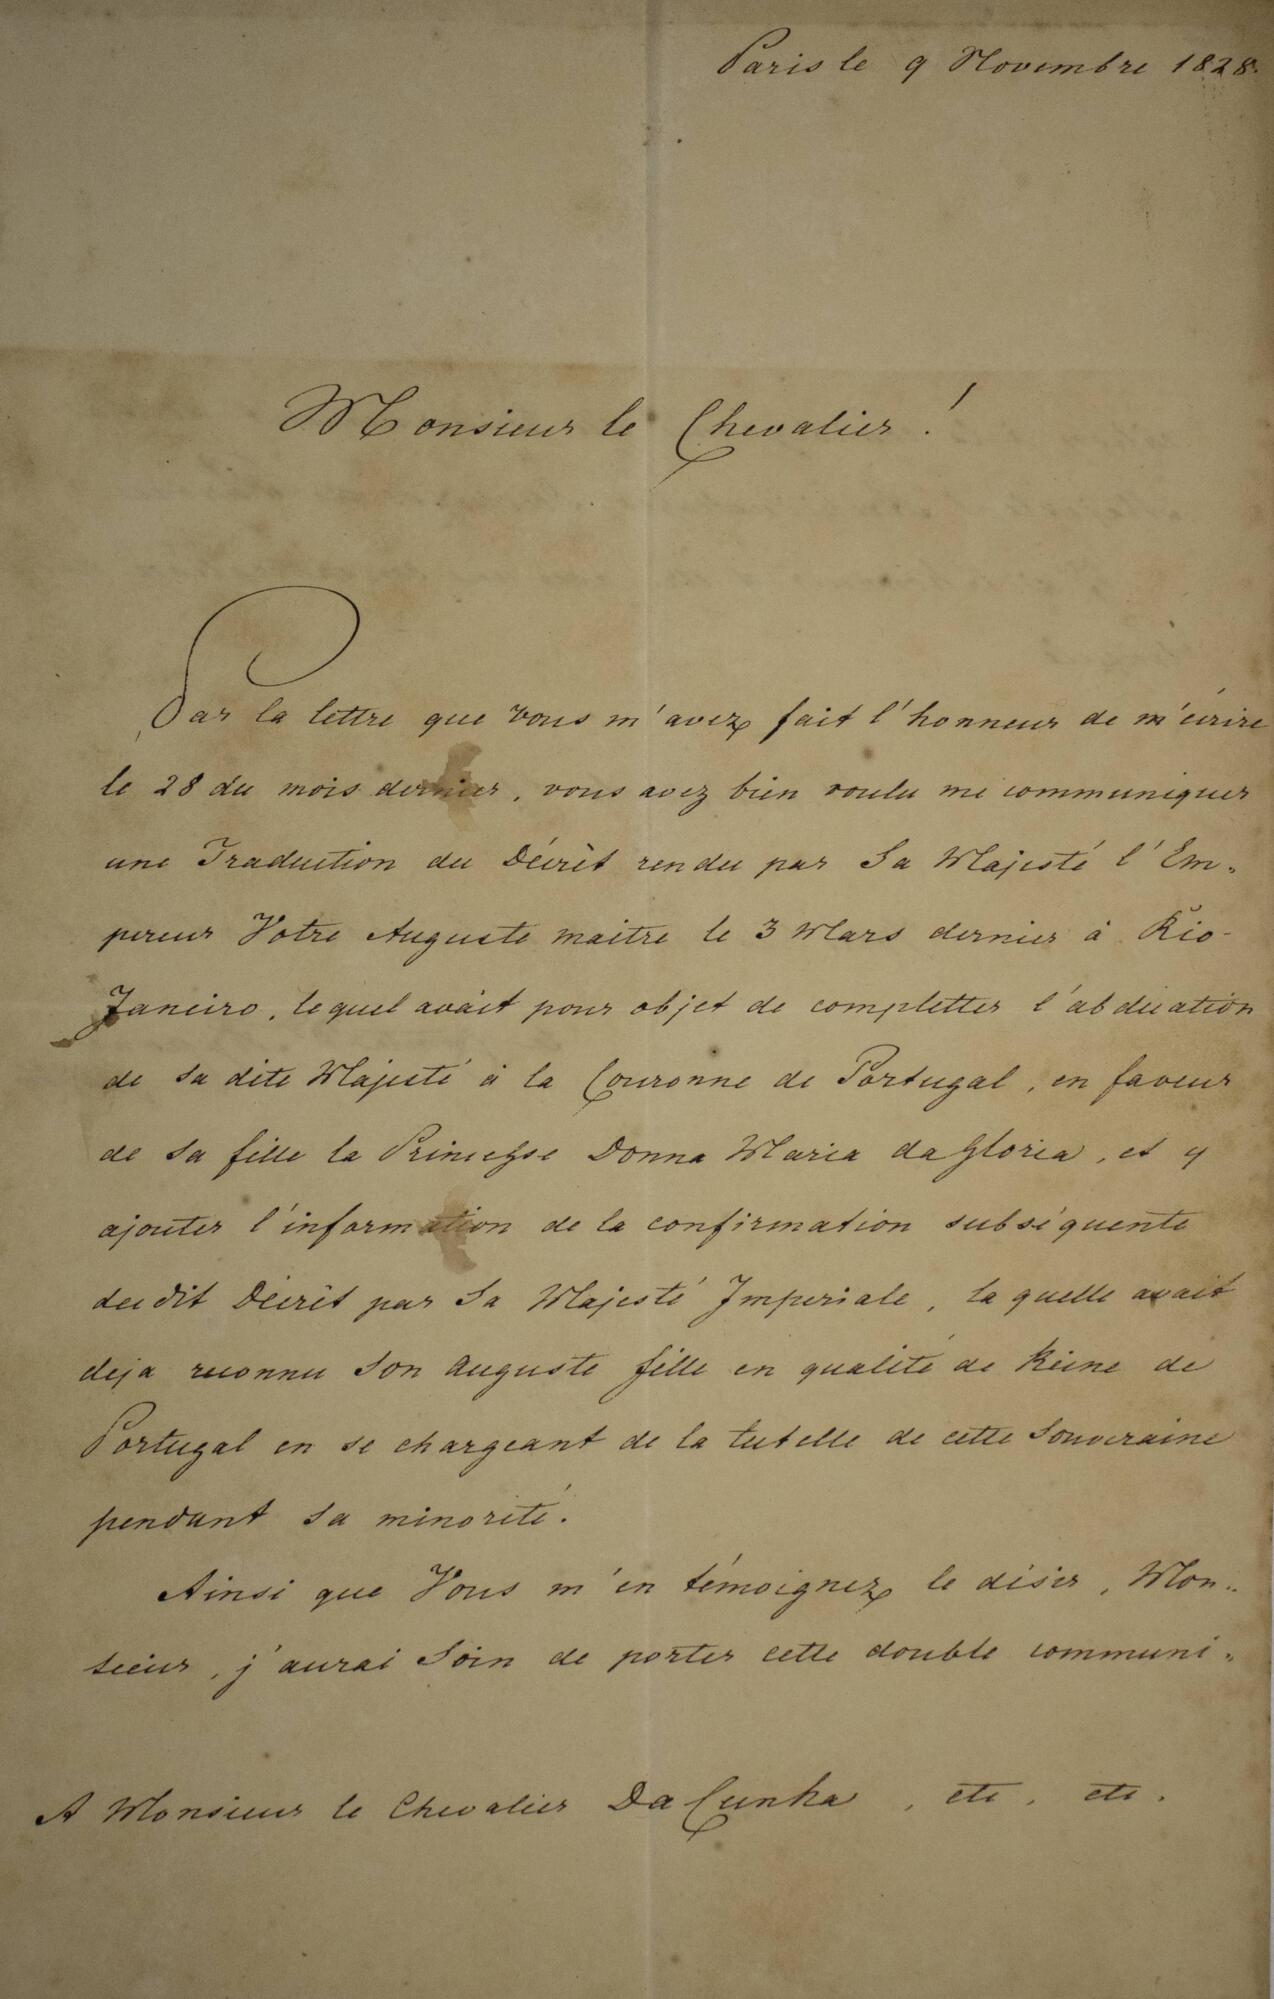 Paris le 9 Novembre 1828.
Monsieur le Chevalier!
Par la lettre que vous m'avez fait l'honneur de m'écrire
le 28 du mois dernier, vous avez bien voulu me communiquer
une Traduction du Décrèt rendu par Sa Majesté l'Em-
pereur Votre Auguste maitre le 3 Mars dernier à Rio-
Janeiro, lequel avait pour objet de completter l'abdication
de sa dite Majesté à la Couronne de Portugal, en faveur
de sa fille la Princesse Donna Maria da Gloria, et y
ajouter l'information de la confirmation subséquente
du dit Décrèt par Sa Majesté Imperiale, la quelle avait
deja reconnu Son Auguste fille en qualité de Reine de
Portugal en se chargeant de la tutelle de cette Souveraine
pendant sa minorité.
Ainsi que Vous m'en témoignez le désir, Mon-
sieur, j'aurai Soin de porter cette double communi-
A Monsieur le Chevalier Da Cunha, etc. etc.